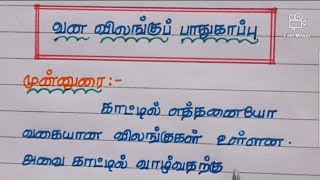 வன விலங்குப் பாதுகாப்பு
முன்னுரை:-
காட்டில் எத்தனையோ
வகையான விலங்குகள் உள்ளன.
அவை காட்டில் வாழ்வதற்கு